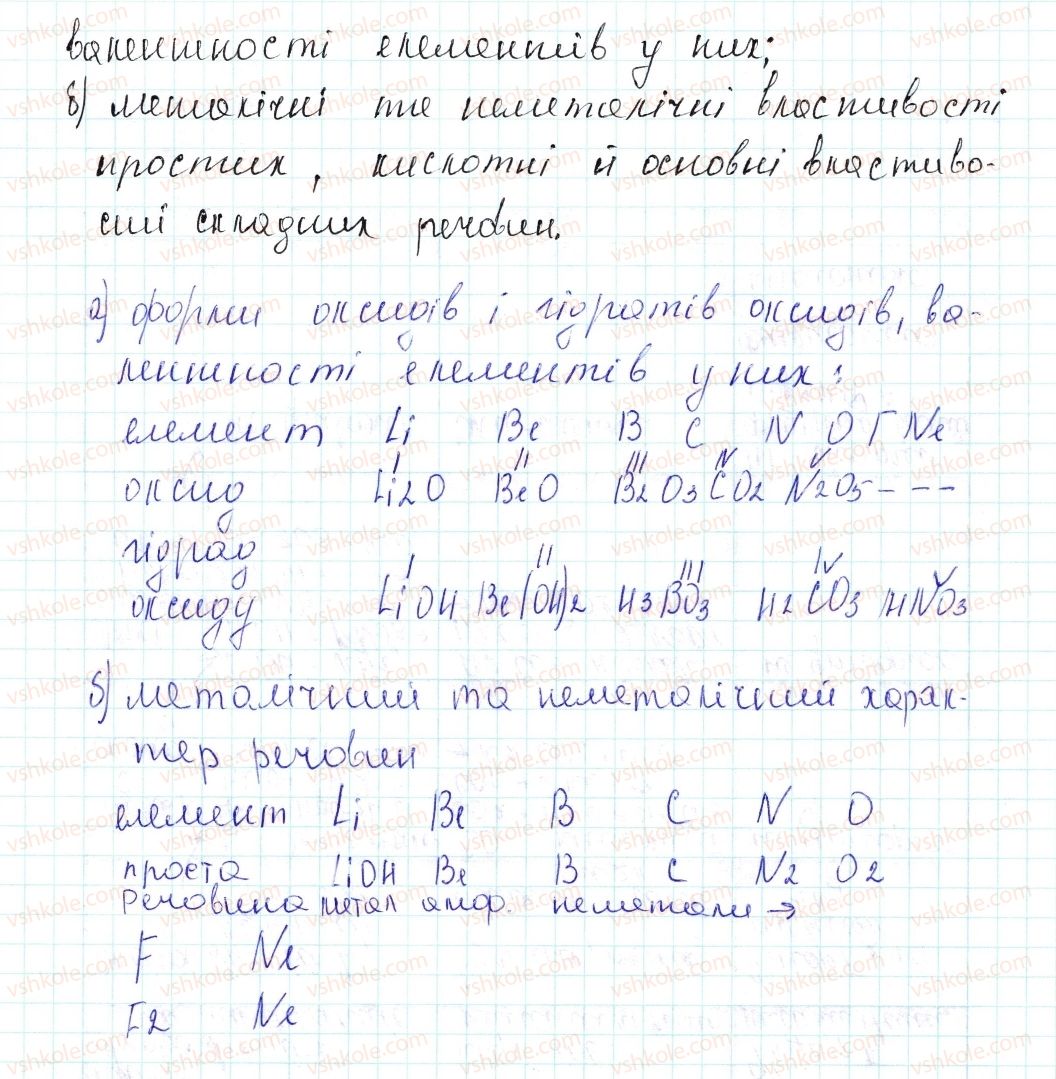 валентності елементів у них;
б) металічні та неметалічні властивості
простих, кислотні й основні властиво-
сті складних речовин.
а) форми оксидів і гідратів оксидів, ва-
лентності елементів у них:
елемент Li Be B C N O F Ne
оксид Li2O BeO B2O3 CO2 N2O5 - - -
I II III IV V
гідрад
оксиду LiOH Be(OH)2 H3BO3 H2CO3 HNO3
I II III IV V
б) металічний та неметалічний харак-
тер речовин
елемент Li Be B C N O
проста LiOH Be B C N2 O2
речовина метал амфор. неметали →
F Ne
F2 Ne
vshkole.com